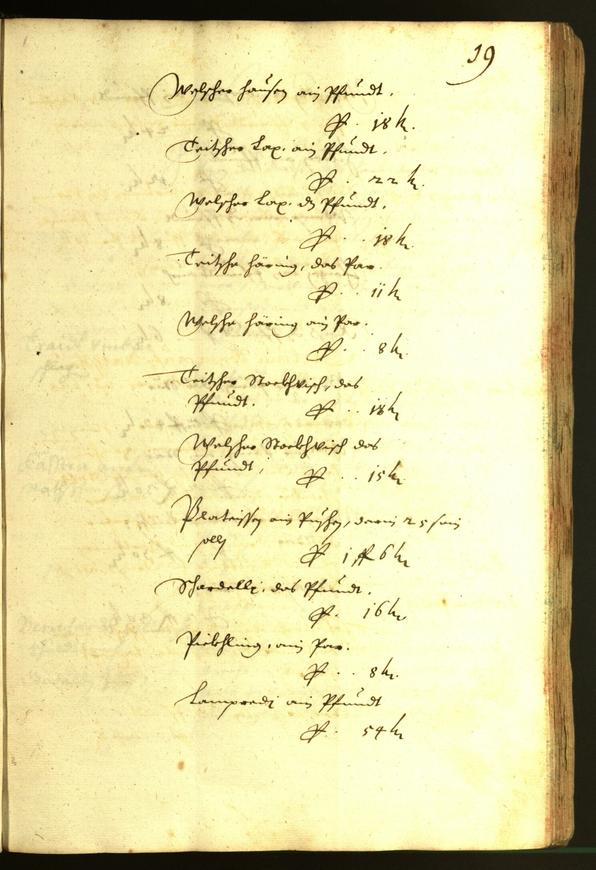 19
Welscher hausen ain Pfundt.
P. 18 kr.
Teitscher Lax. ain Pfundt.
P. 22 kr.
Welscher Lax. ds Pfundt.
P. . 18 kr.
Teitsche häring, das Par.
P. . 11 kr
Welsche häring ain Par.
P. . 8 kr.
Teitscher Stockhvisch, das
Pfundt. P. . . 18 kr
Welscher Stockhvisch das
Pfundt, P. . . 15 kr.
Plateissen ain Puschen, darin 25 sein
soll P. 1 fl 6 kr
Schardelle, das Pfundt.
P. 16 kr
Pickhling, ain Par.
P. . . 8 kr.
Lampreden ain Pfundt
P. 54 kr